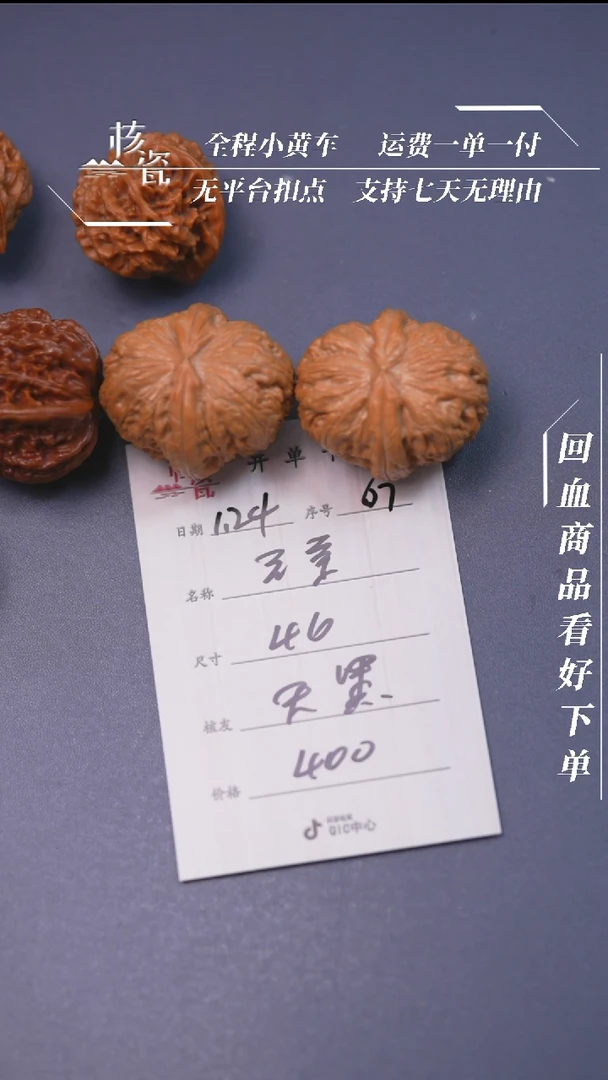 核瓷
全程小黄车 运费一单一付
无平台扣点 支持七天无理由
回血商品看好下单
核瓷
开单
日期 1.24 序号 67
名称
尺寸 46
核友 天黑、
价格 400
QIC中心